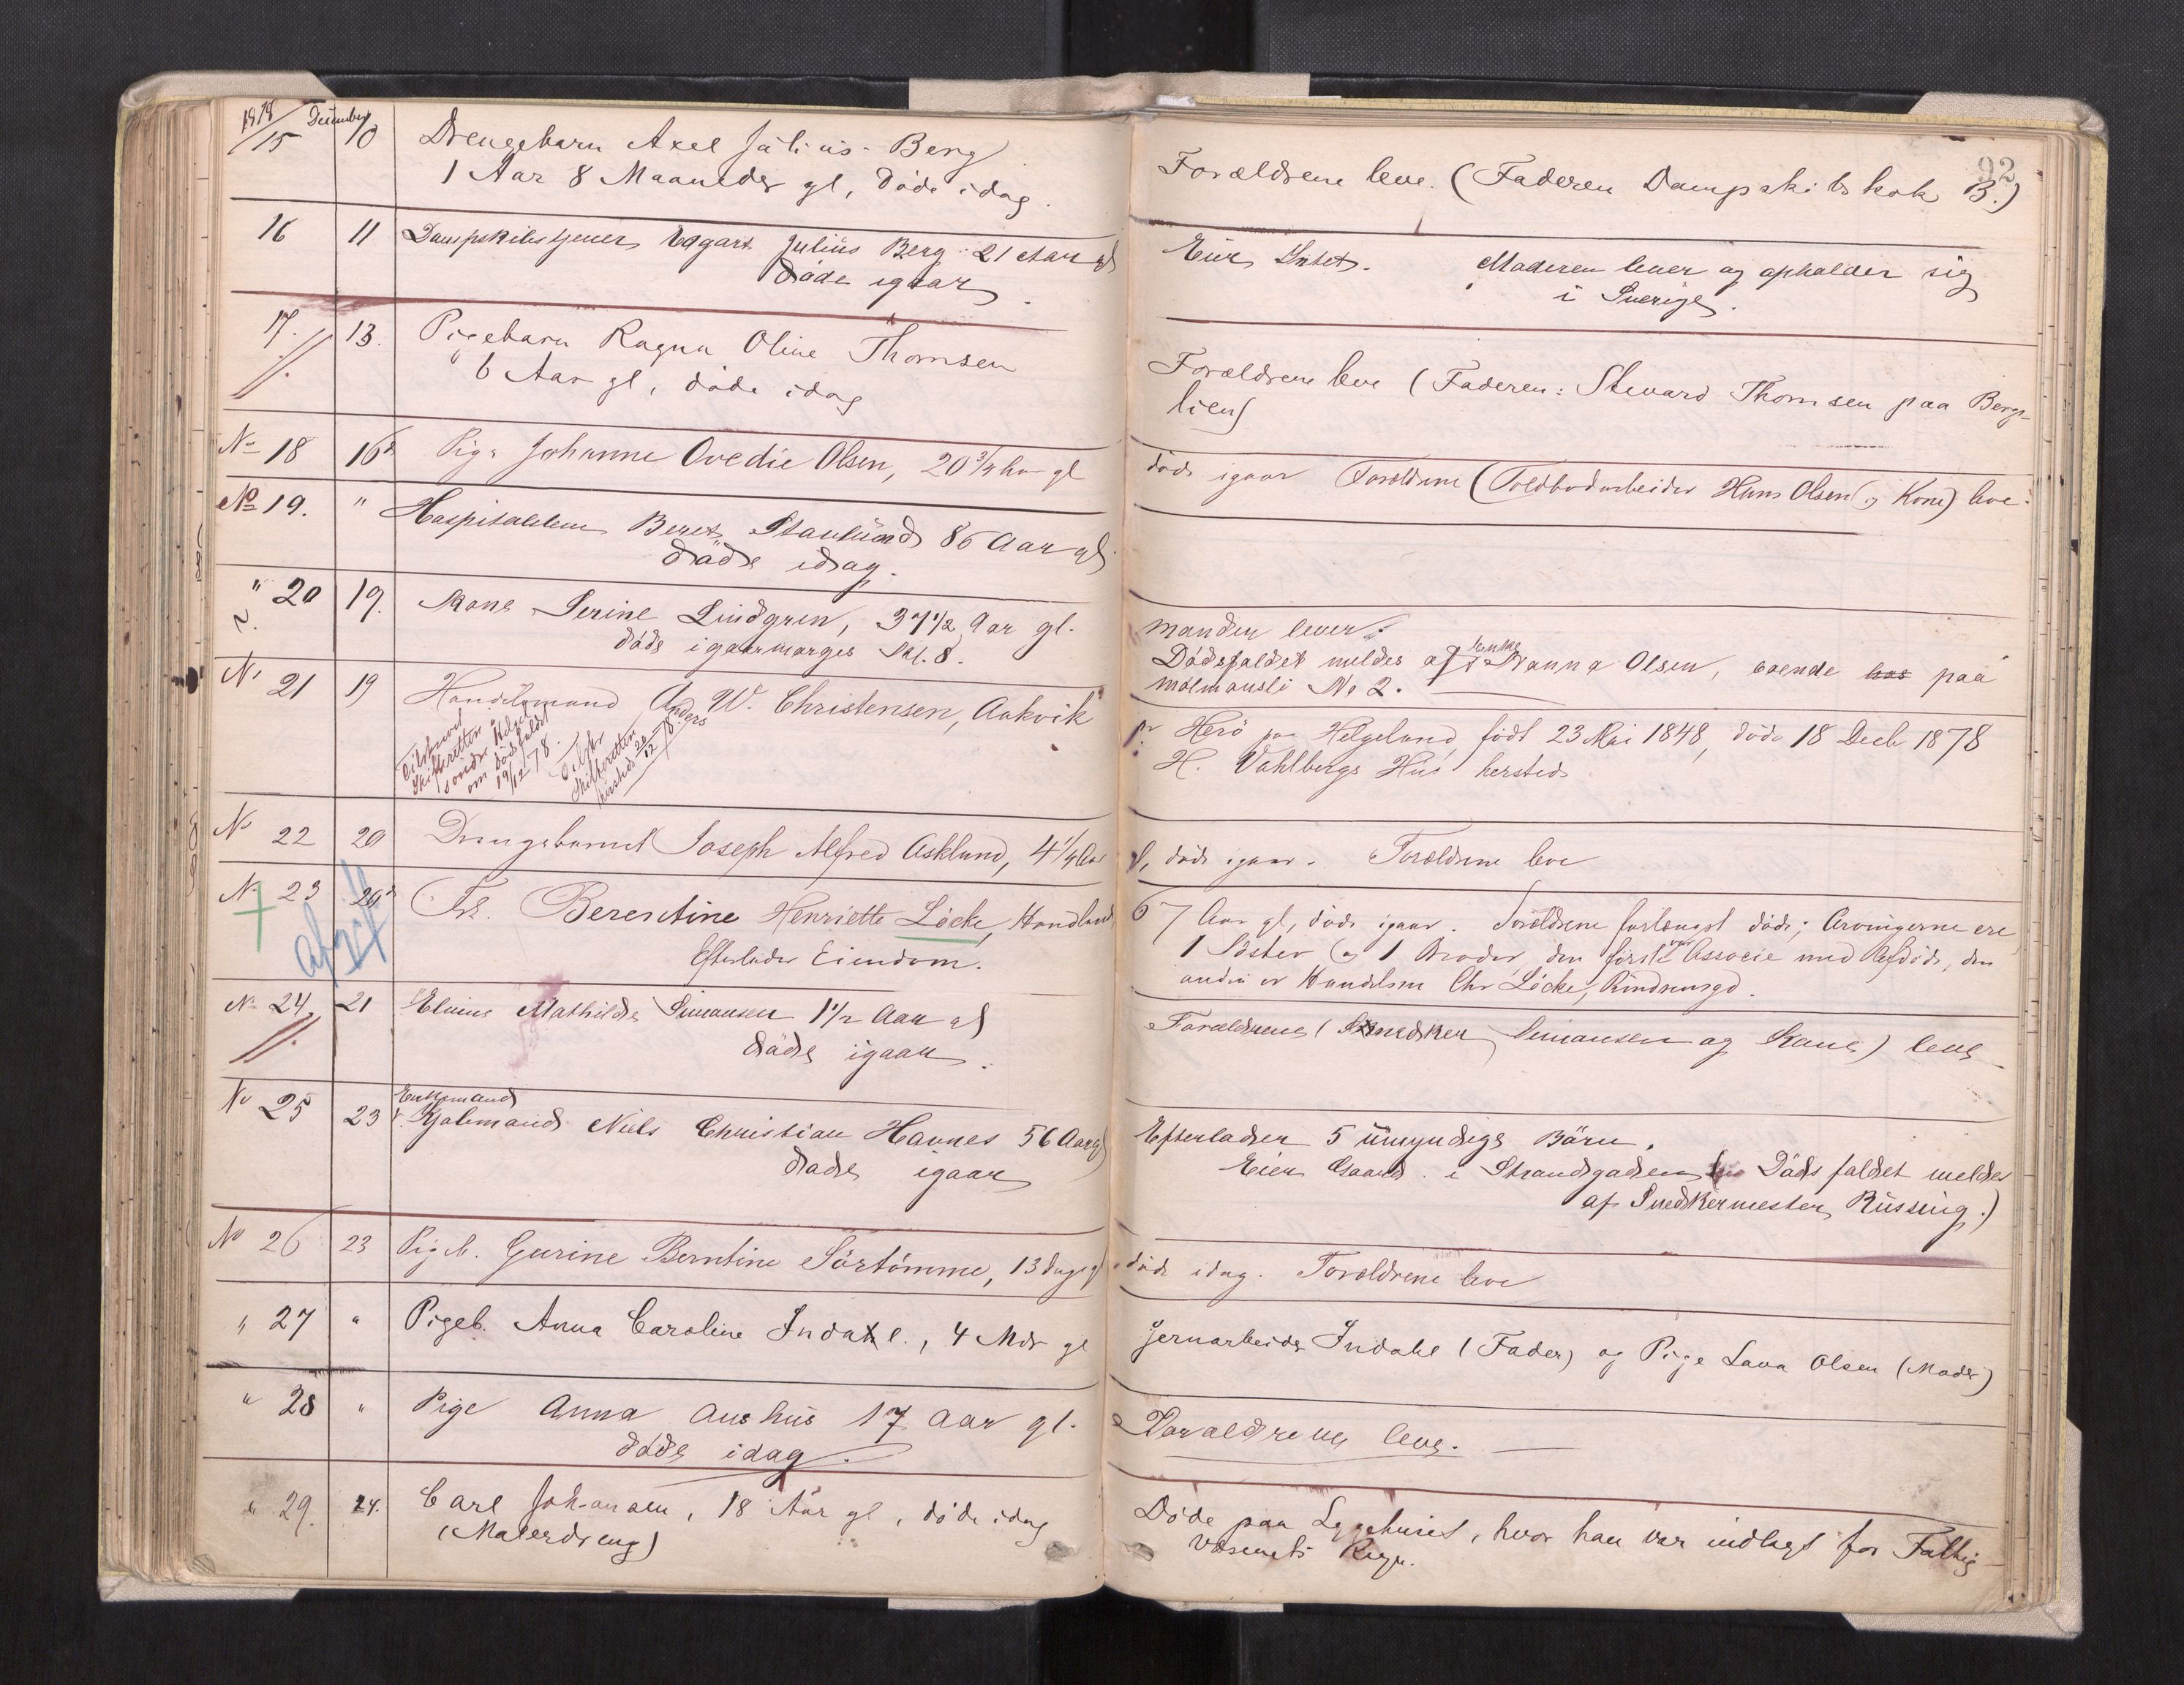 1878 December
92
15 10 Drengebarn Axel Julius Berg
1 Aar 8 Maaneder gl, döde idag.
Forældrene leve. (Faderen Dampskibskok B.)
16 11 Dampskibstjener Edgart Julius Berg 21 Aar gl
döde igaar.
Eier Intet. Moderen lever og opholder sig
i Sverige.
17. 13. Pigebarn Ragna Oline Thomsen
6 Aar gl, döde idag
Forældrene leve (Faderen: Stevard Thomsen paa Bergs-
lien)
No 18 16de Pige Johanne Ovedie Olsen, 20 3/4 Aar gl
döde igaar Forældrene (Toldbodarbeider Hans Olsen og Kone) leve.
No 19. " Hospitalslem Beret Stavlund 86 Aar gl.
döde idag.
" 20 19. Kone Serine Lindgren, 37 1/2 Aar gl.
döde igaarmorges Kl. 8.
Manden lever.
Dödsfaldet meldes af Enke Nanna Olsen, boende hos paa
Molmansli No 2.
No 21 19 Handelsmand Anders W. Christensen, Aakvik
pr Herö paa Helgeland, födt 23 Mai 1848, döde 18 Decb 1878
H. Vahlbergs Hus hersteds
Tilskrevet
Skifteretten i
söndre Helgeland
om Dödsfaldet
19/12 78.
Tilskr
Skifteretten
hersteds 20/12 78.
No 22 20 Drengebarnet Joseph Alfred Asklund, 4 1/4 Aar
gl, döde igaar. Forældrene leve
No 23 20de Frk. Berentine Henriette Löcke, Handlende
67 Aar gl, döde igaar. Forældrene forlængst döde; Arvingerne ere
Efterlader Eiendom.
1 Söster og 1 Broder, den förste var Associe med Afdöde, den
anden er Handelsm Chr Löcke, Rindemsgd.
No 24, 21 Elvine Mathilde Simonsen 1 1/2 Aar gl
döde igaar.
Forældrene (Snedker Simonsen og Kone) leve
No 25 23 Enkemand
Kjölmand Niels Christian Havnes 56 Aar gl
döde igaar
Efterlader 5 umyndige Börn.
Eier Gaard i Strandgaden (Dödsfaldet meldes
af Snedkermester Rüssing.)
No 26 23 Pigeb. Gurine Berntine Sörtömme, 13 Dage gl
döde idag. Forældrene leve
" 27 " Pigeb. Anna Caroline Indahl., 4 Mdr gl
Jernarbeider Indahl (Fader) og Pige Lava Olsen (Moder)
" 28 " Pige Anna Aushus 17 Aar gl.
döde idag.
Forældrene leve.
" 29. 24. Carl Johansen, 18 Aar gl, döde idag
(Malerdreng)
Döde paa Sygehuset, hvor han var indlagt for Fattig
væsenets Regn.